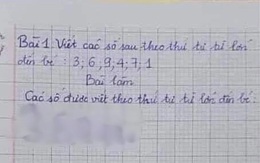 Bài 1: Viết các số sau theo thứ tự từ lớn
đến bé: 3; 6; 9; 4; 7; 1
Bài làm
Các số được viết theo thứ tự từ lớn đến bé: